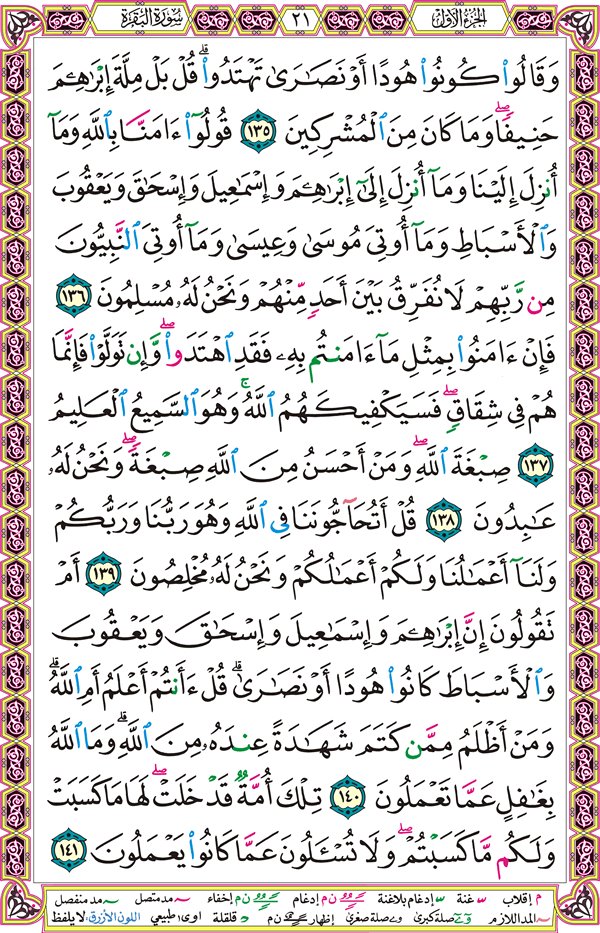 الجزء الأول
٢١
سورة البقرة
وَقَالُوا۟ كُونُوا۟ هُودًا أَوْ نَصَٰرَىٰ تَهْتَدُوا۟ ۗ قُلْ بَلْ مِلَّةَ إِبْرَٰهِـۧمَ
حَنِيفًا ۖ وَمَا كَانَ مِنَ ٱلْمُشْرِكِينَ ١٣٥ قُولُوٓا۟ ءَامَنَّا بِٱللَّهِ وَمَآ
أُنزِلَ إِلَيْنَا وَمَآ أُنزِلَ إِلَىٰٓ إِبْرَٰهِـۧمَ وَإِسْمَٰعِيلَ وَإِسْحَٰقَ وَيَعْقُوبَ
وَٱلْأَسْبَاطِ وَمَآ أُوتِىَ مُوسَىٰ وَعِيسَىٰ وَمَآ أُوتِىَ ٱلنَّبِيُّونَ
مِن رَّبِّهِمْ لَا نُفَرِّقُ بَيْنَ أَحَدٍ مِّنْهُمْ وَنَحْنُ لَهُۥ مُسْلِمُونَ ١٣٦
فَإِنْ ءَامَنُوا۟ بِمِثْلِ مَآ ءَامَنتُم بِهِۦ فَقَدِ ٱهْتَدَوا۟ ۖ وَّإِن تَوَلَّوْا۟ فَإِنَّمَا
هُمْ فِى شِقَاقٍ ۖ فَسَيَكْفِيكَهُمُ ٱللَّهُ ۚ وَهُوَ ٱلسَّمِيعُ ٱلْعَلِيمُ
١٣٧ صِبْغَةَ ٱللَّهِ ۖ وَمَنْ أَحْسَنُ مِنَ ٱللَّهِ صِبْغَةً ۖ وَنَحْنُ لَهُۥ
عَٰبِدُونَ ١٣٨ قُلْ أَتُحَآجُّونَنَا فِى ٱللَّهِ وَهُوَ رَبُّنَا وَرَبُّكُمْ
وَلَنَآ أَعْمَٰلُنَا وَلَكُمْ أَعْمَٰلُكُمْ وَنَحْنُ لَهُۥ مُخْلِصُونَ ١٣٩ أَمْ
تَقُولُونَ إِنَّ إِبْرَٰهِـۧمَ وَإِسْمَٰعِيلَ وَإِسْحَٰقَ وَيَعْقُوبَ
وَٱلْأَسْبَاطَ كَانُوا۟ هُودًا أَوْ نَصَٰرَىٰ ۗ قُلْ ءَأَنتُمْ أَعْلَمُ أَمِ ٱللَّهُ ۗ
وَمَنْ أَظْلَمُ مِمَّن كَتَمَ شَهَٰدَةً عِندَهُۥ مِنَ ٱللَّهِ ۗ وَمَا ٱللَّهُ
بِغَٰفِلٍ عَمَّا تَعْمَلُونَ ١٤٠ تِلْكَ أُمَّةٌ قَدْ خَلَتْ ۖ لَهَا مَا كَسَبَتْ
وَلَكُم مَّا كَسَبْتُمْ ۖ وَلَا تُسْـَٔلُونَ عَمَّا كَانُوا۟ يَعْمَلُونَ ١٤١
م إقلاب س غنة س إدغام بلاغنة ن م إدغام ن م إخفاء ~ مد متصل ~ مد منفصل
~ المد اللازم صلة كبرى و ے صلة صغرى إظهار ن م د قلقلة اوى: طبيعي اللون الأزرق: لا يلفظ